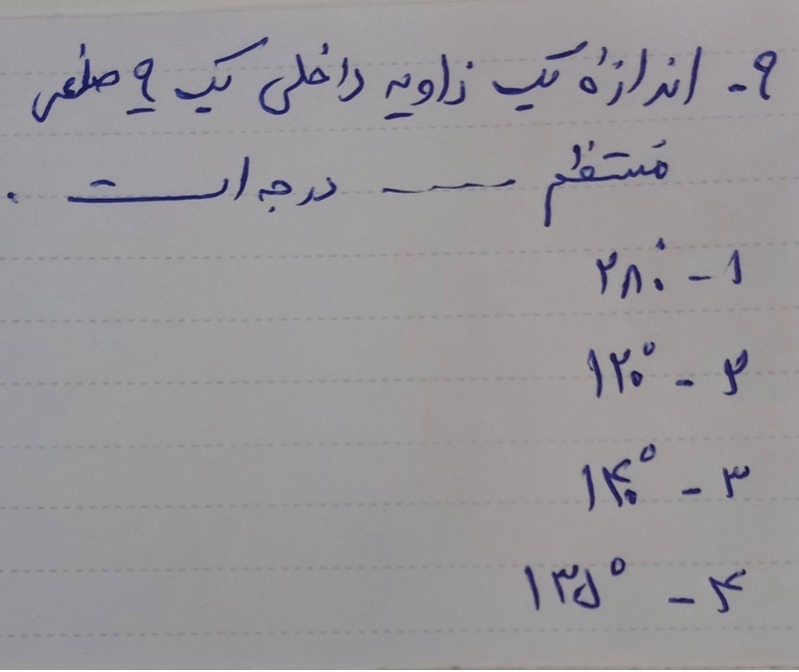 ۹- اندازهٔ یک زاویه داخلی یک ۹ ضلعی
منتظم ـــــ درجه است .
۱- ۲۸۰°
۲- ۱۲۰°
۳- ۱۴۰°
۴- ۱۳۵°